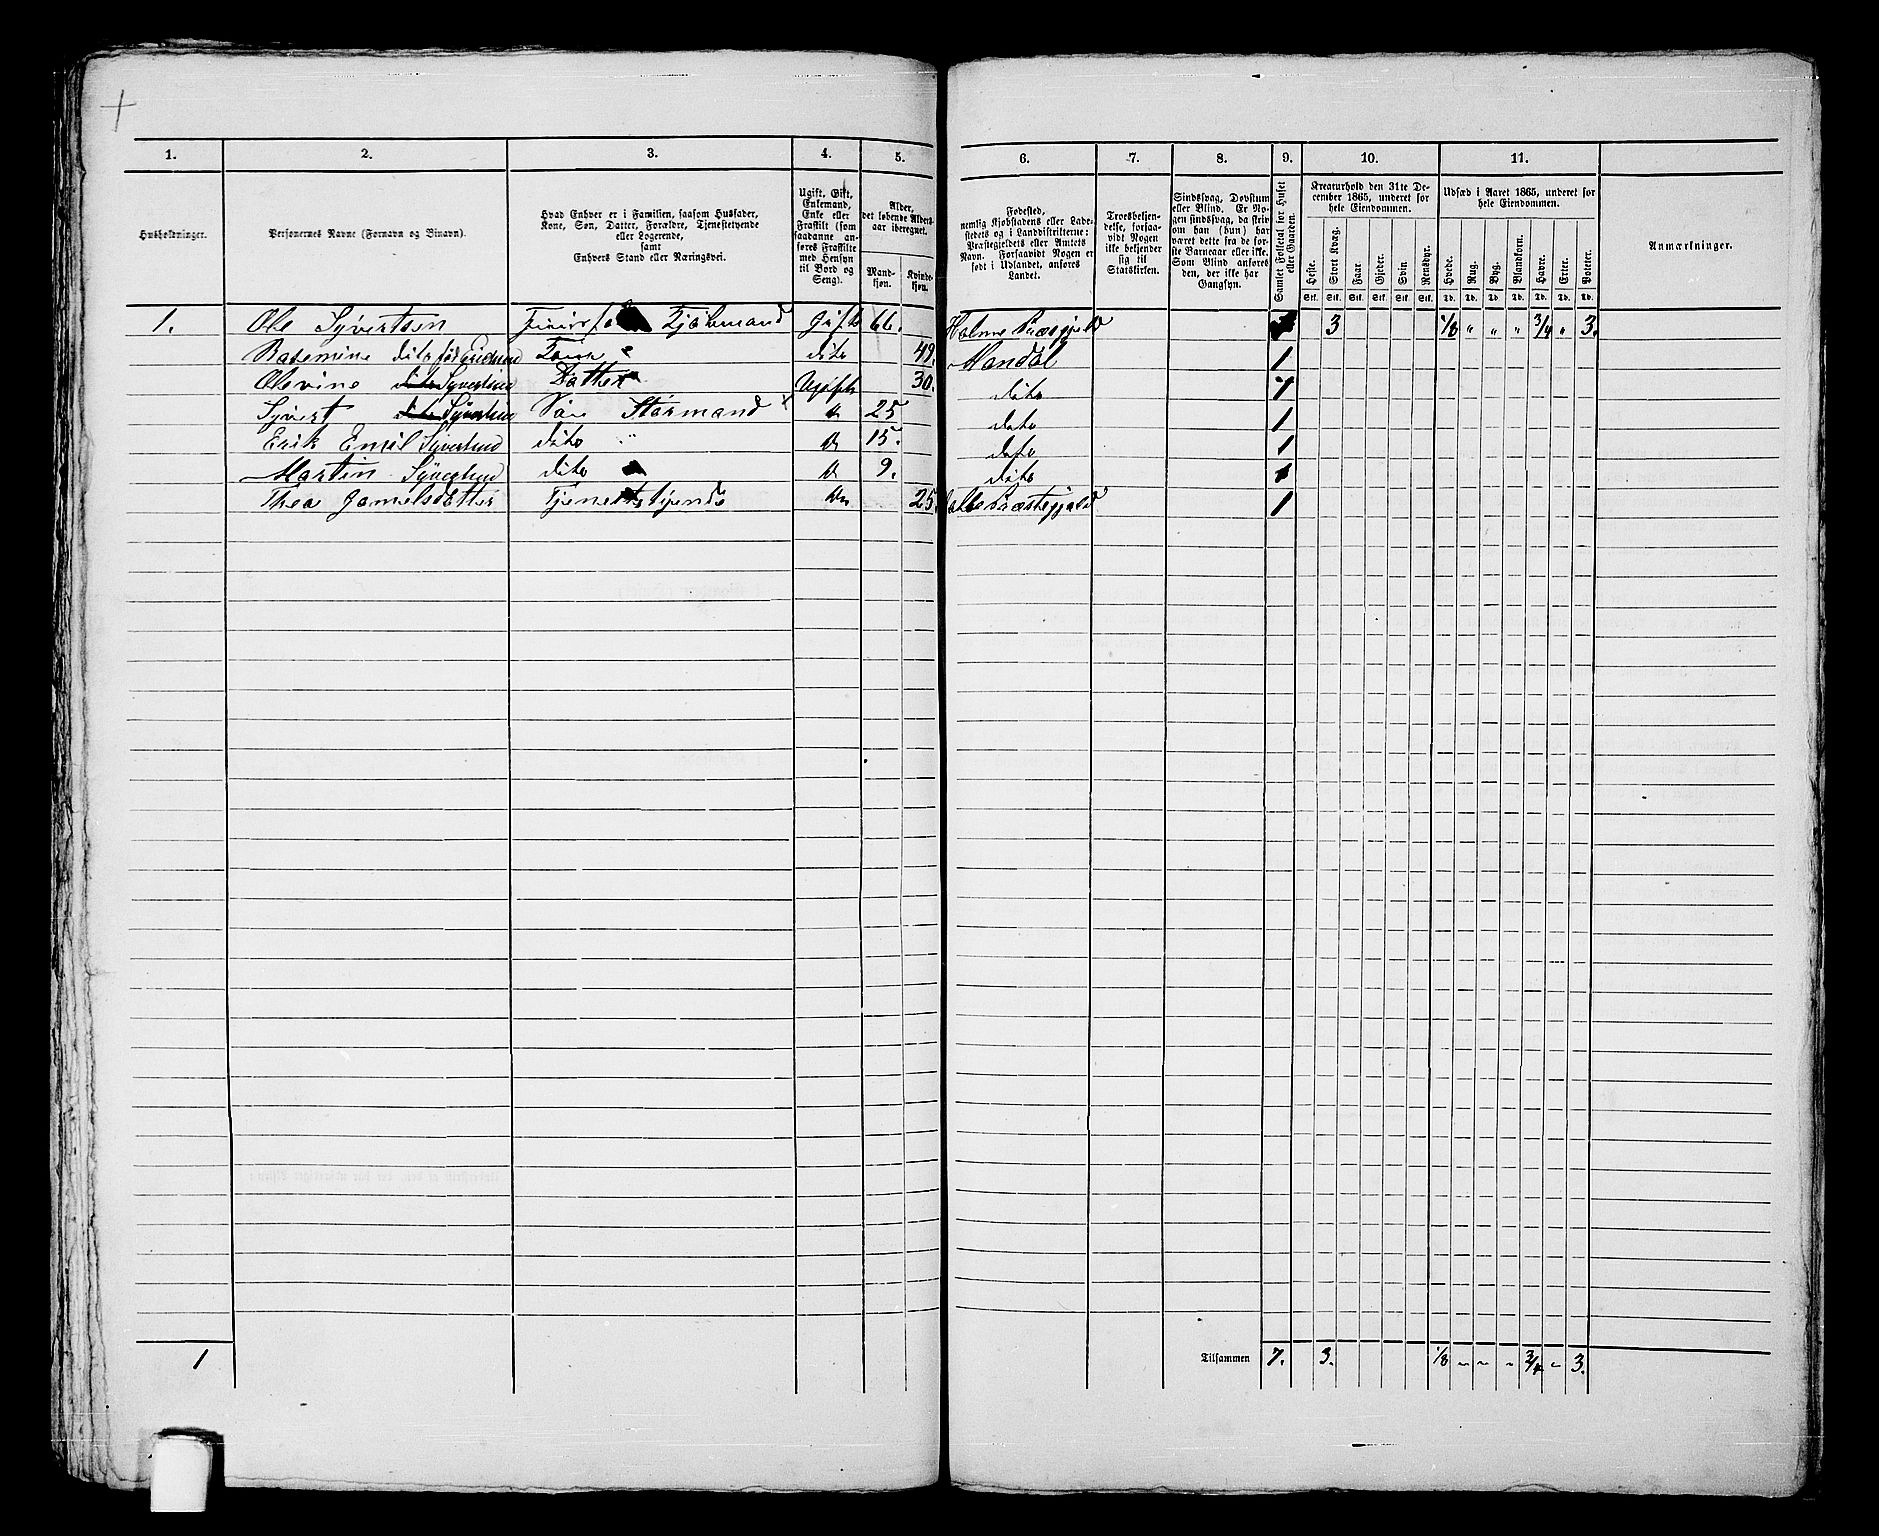 1. 2. 3. 4. 5. 6. 7. 8. 9. 10. 11.
Husholdninger.
Personernes Navne (Fornavn og Binavn).
Hvad Enhver er i Familien, saasom Husfader,
Kone, Søn, Datter, Forældre, Tjenestetyende
eller Logerende,
samt
Enhvers Stand eller Næringsvei.
Ugift, Gift,
Enkemand,
Enke eller
Fraskilt (som
saadanne an-
føres Fraskilte
med Hensyn
til Bord og
Seng).
Alder,
det løbende Alders-
aar iberegnet.
Mand-
kjøn.
Kvinde-
kjøn.
Fødested,
nemlig Kjøbstadens eller Lade-
stedets og i Landdistrikterne:
Præstegjeldets eller Amtets
Navn. Forsaavidt Nogen er
født i Udlandet, anføres
Landet.
Troesbekjen-
delse, forsaa-
vidt Nogen
ikke bekjender
sig til
Statskirken.
Sindssvag, Døvstum
eller Blind. Er No-
gen sindssvag, da skriv
om han (hun) har
været dette fra de før-
ste Barneaar eller ikke.
Som Blind anføres
den, der ikke har
Gangsyn.
Samlet Folketal for Huset
eller Gaarden.
Kreaturhold den 31te De-
cember 1865, underet for
hele Eiendommen.
Heste. Stort Kvæg. Faar. Gjeder. Svin. Rensdyr.
Stk. Stk. Stk. Stk. Stk. Stk.
Udsæd i Aaret 1865, underet for
hele Eiendommen.
Hvede. Rug. Byg. Blandkorn. Havre. Erter. Poteter.
Td. Td. Td. Td. Td. Td. Td.
Anmærkninger.
1. Ole Syvertsen Kjøbmand Gift 66. Holme Præstegjeld 1 3 1/8 " " " 3/4 " 3.
dito født Kone " dito 49. Mandal 1
Olevine dito Syvertsen Datter Ugift 30. dito 1
Syvert dito Syvertsen Søn Styrmand + Do 25 dito 1
Erik Emil Syvertsen dito " Do 15. dito 1
Martin Syvertsen dito Do 9. dito 1
Thea Tjenestetyende Do 25. Præstegjeld 1
1 Tilsammen 7. 3. 1/8 " " " 3/4 " 3.